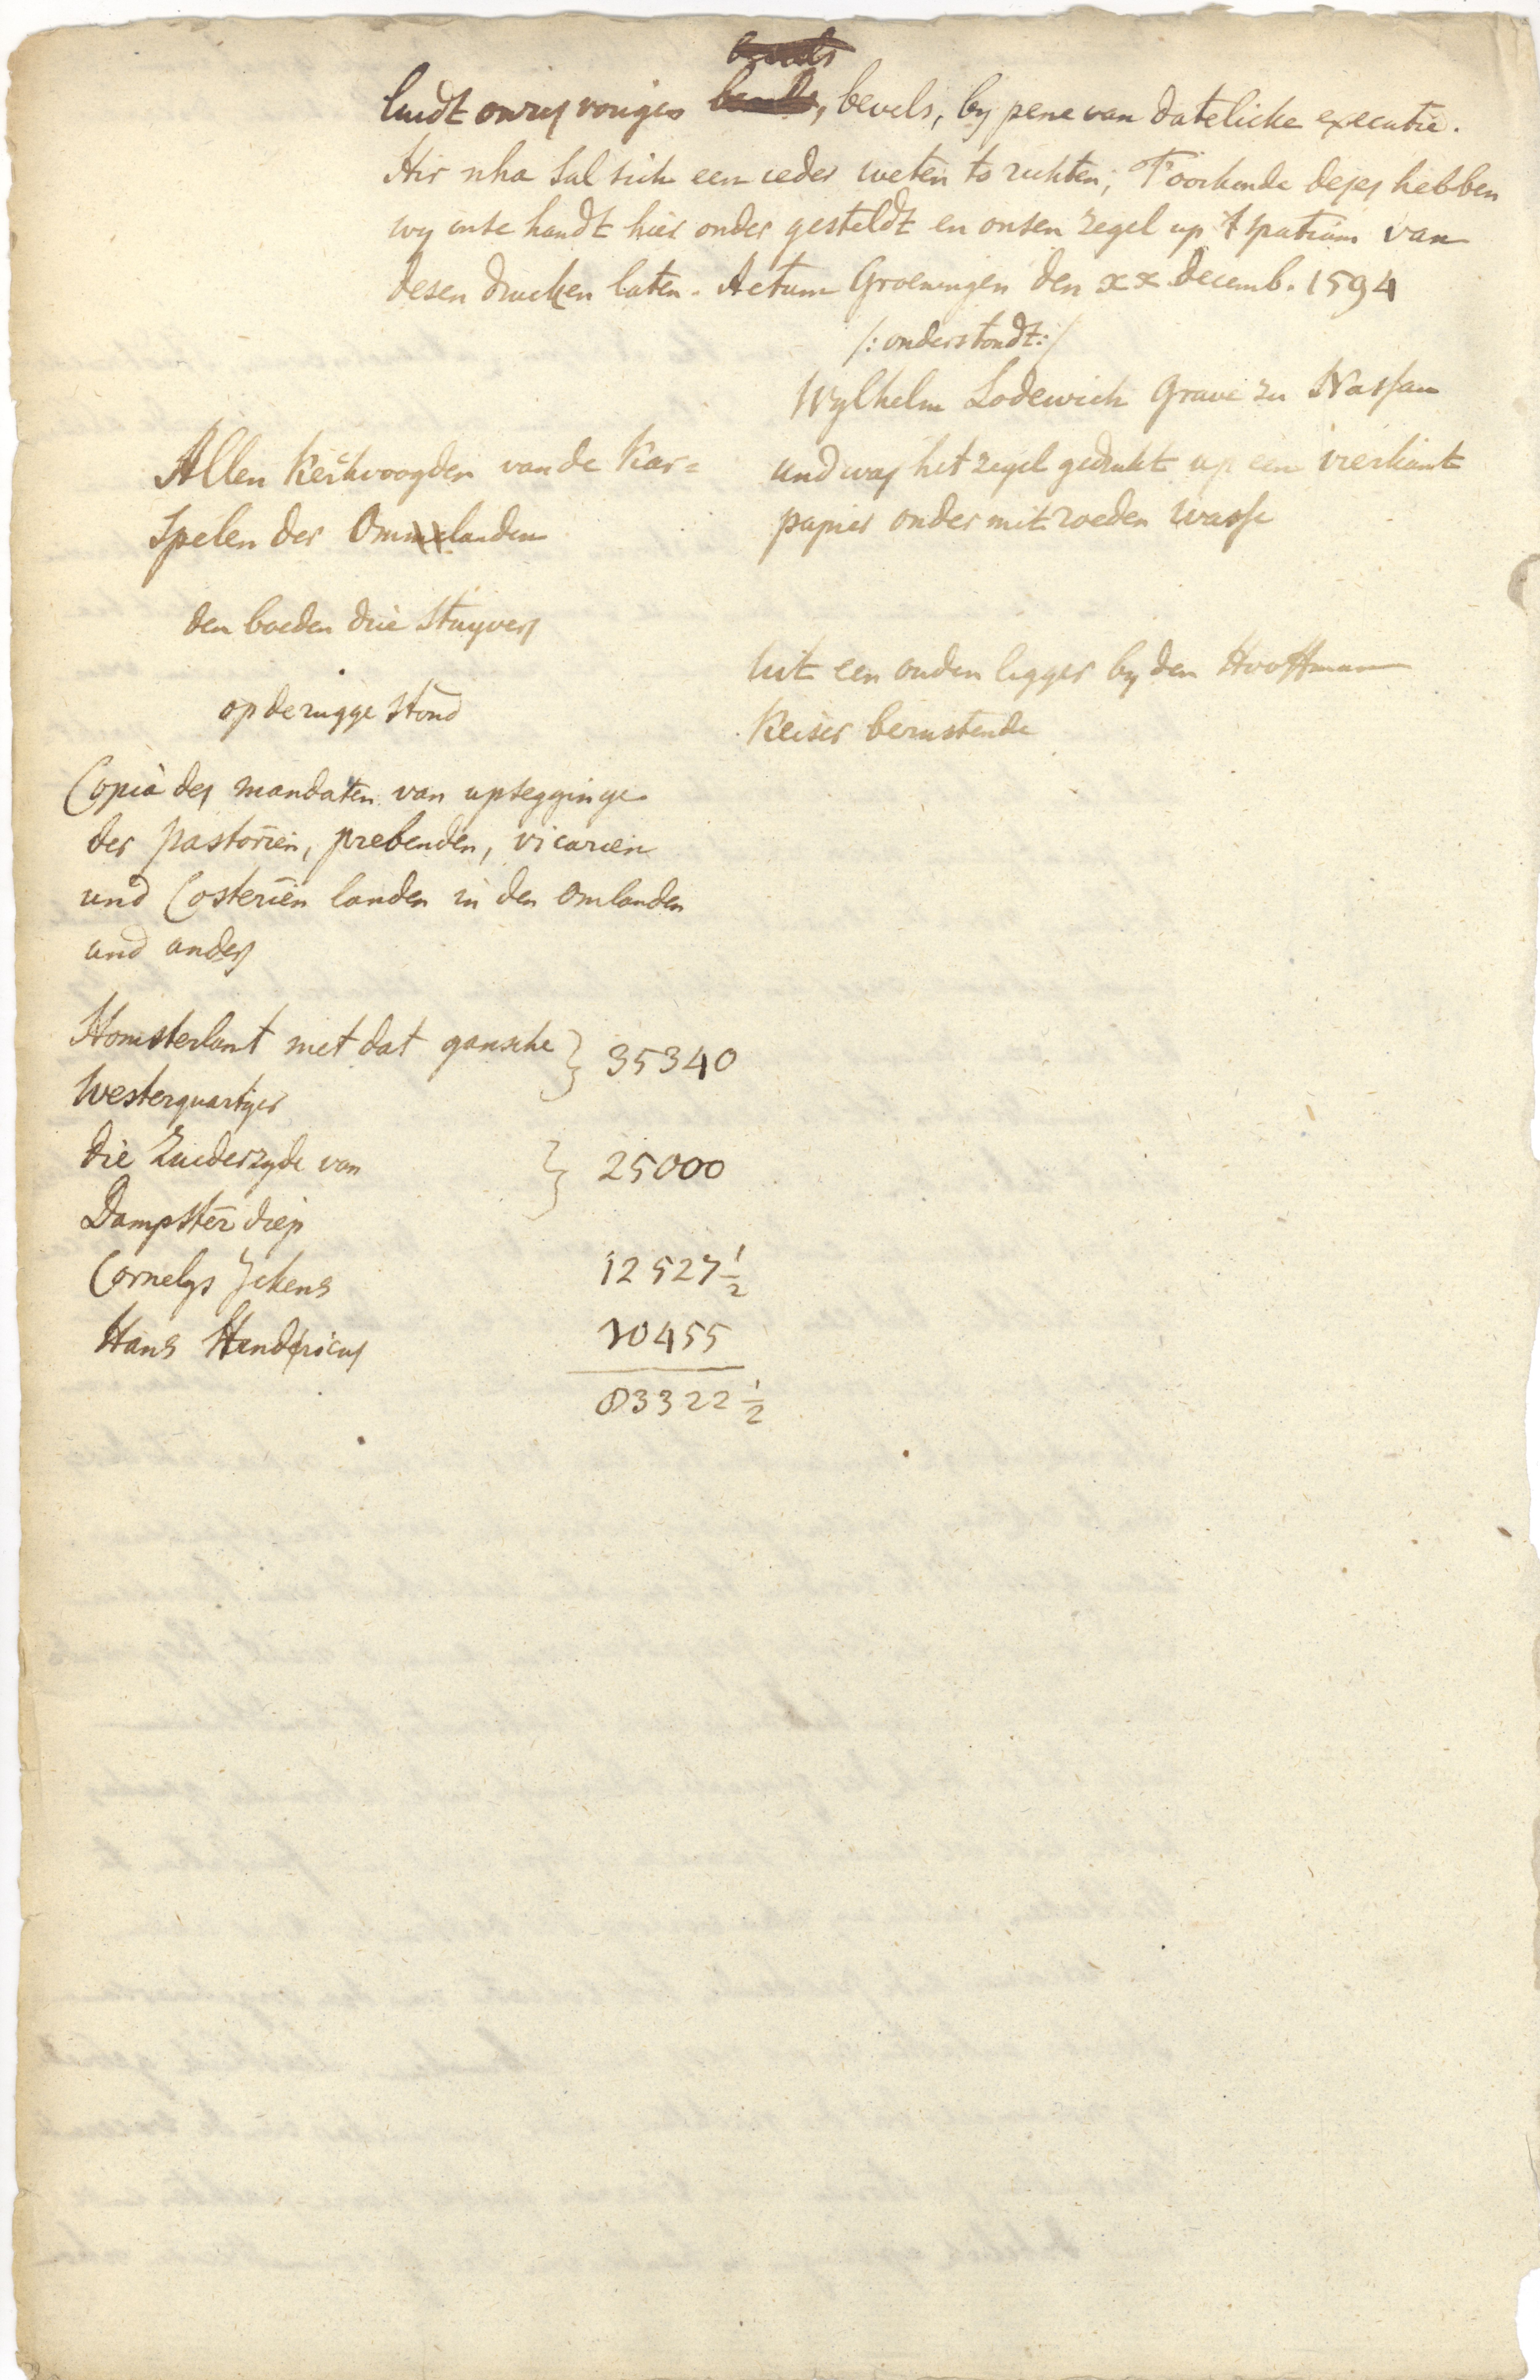 luidt onses voriges bevels, bevels, by pene van datelicke executie.
Hir nha sal sich een ieder weten to richten, T'oorkonde deses hebben
wy onse handt hier onder gesteldt en onsen zegel up t spatium van
desen drucken laten. Actum Groeningen den xx decemb. 1594
/: onderstondt :/
Wylhelm Lodewich Grave zu Nassau
und was het zegel gedrukt up een vierkant
papier onder mit roeden wasse
Allen Kerkvoogden van de Kar=
spelen der Ommelanden
den boeden drie Stuyvers
op de rugge stond
uit een ouden ligger by den Hooftman
Keiser berustende
Copia des mandaten van upsegginge
der pastorien, prebenden, vicarien
und Costerien landen in den Omlanden
und anders
Homsterlant met dat gansche } 35340
Westerquartyer
die Zuiderzyde van } 25000
Dampster diep
Cornelys Jckens 12527 1/2
Hans Hendricus 10455
83322 1/2